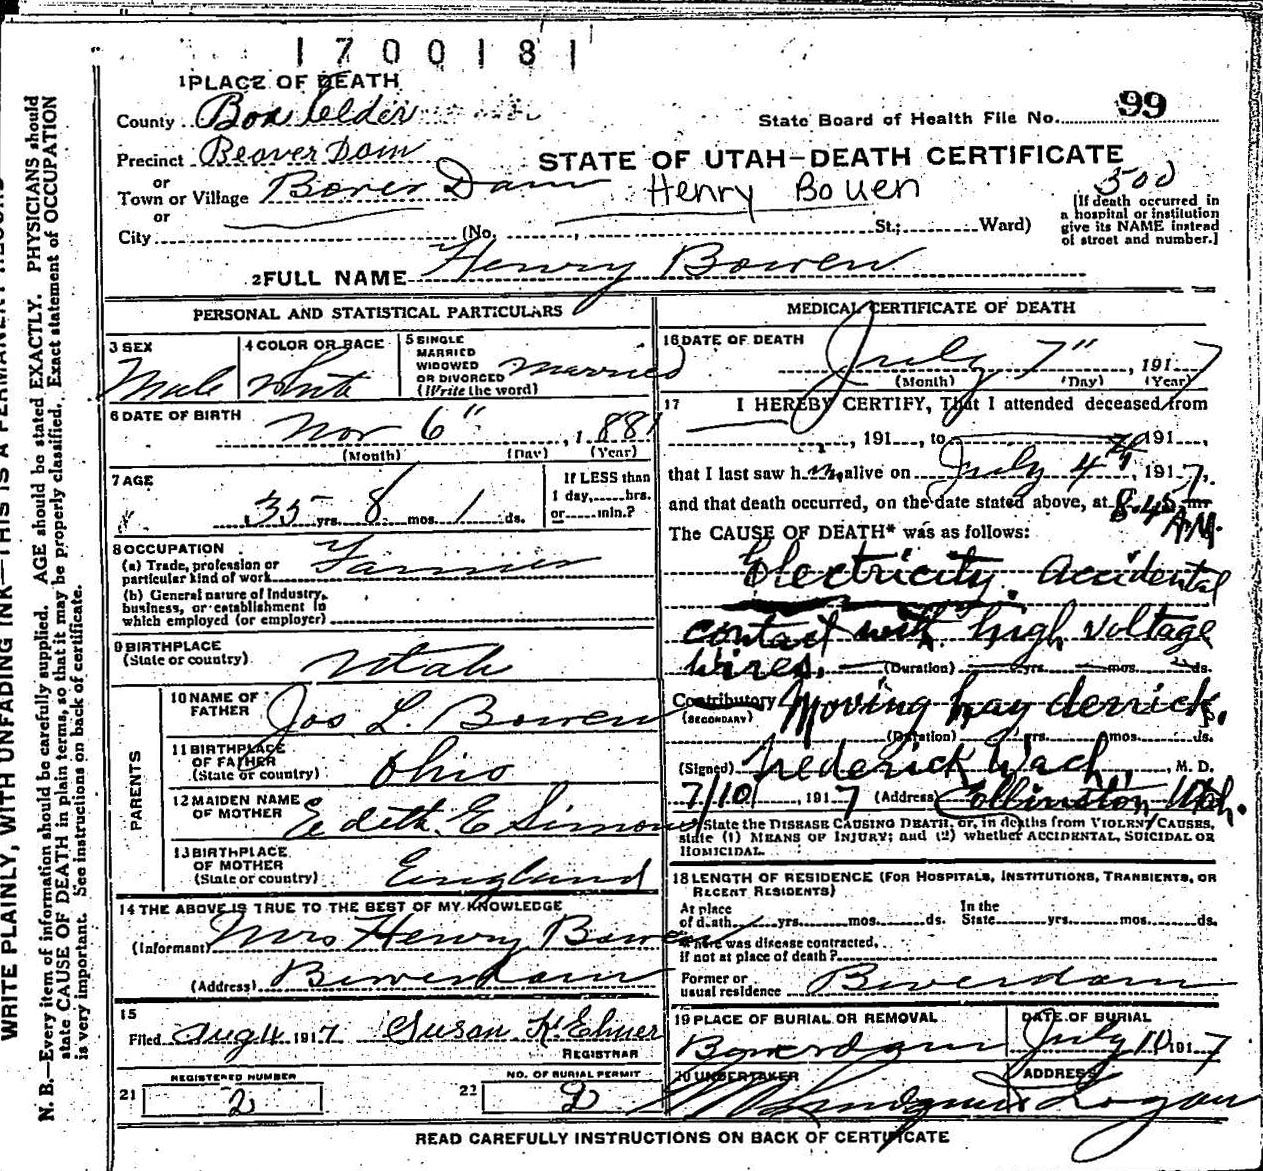 1700181
1 PLACE OF DEATH
County Box Elder
State Board of Health File No. 99
Precinct Beaver Dam
STATE OF UTAH—DEATH CERTIFICATE
or
Town or Village Bover Dam
Henry Bowen
500
or
City (No. , St.; Ward)
[If death occurred in
a hospital or institution
give its NAME instead
of street and number.]
2 FULL NAME Henry Bowen
PERSONAL AND STATISTICAL PARTICULARS
3 SEX
Male
4 COLOR OR RACE
White
5 SINGLE
MARRIED
WIDOWED
OR DIVORCED
(Write the word)
Married
6 DATE OF BIRTH
Nov 6" , 1 881
(Month) (Day) (Year)
7 AGE
35 yrs. 8 mos. 1 ds.
If LESS than
1 day, hrs.
or min.?
8 OCCUPATION
(a) Trade, profession or
particular kind of work
Farmer
(b) General nature of Industry,
business, or establishment in
which employed (or employer)
9 BIRTHPLACE
(State or country)
Utah
PARENTS
10 NAME OF
FATHER
Jos L. Bowen
11 BIRTHPLACE
OF FATHER
(State or country)
Ohio
12 MAIDEN NAME
OF MOTHER
Edith E Simons
13 BIRTHPLACE
OF MOTHER
(State or country)
England
14 THE ABOVE IS TRUE TO THE BEST OF MY KNOWLEDGE
(Informant) Mrs Henry Bowen
(Address) Beverdam
15
Filed Aug 4 1917 Susan K
REGISTRAR
REGISTERED NUMBER
21 2
NO. OF BURIAL PERMIT
22 2
MEDICAL CERTIFICATE OF DEATH
16 DATE OF DEATH
July 7" , 1917
(Month) (Day) (Year)
17 I HEREBY CERTIFY, That I attended deceased from
, 191 , to 191 ,
that I last saw h im alive on July 4th, 1917,
and that death occurred, on the date stated above, at 8-45 m
A.M.
The CAUSE OF DEATH* was as follows:
Electricity. Accidental
contact with high voltage
wires. (Duration) yrs. mos. ds.
Contributory Moving hay derrick.
(SECONDARY)
(Duration) yrs. mos. ds.
(Signed) Frederick Wach, M. D.
7/10 , 1917 (Address) Collinston, Utah.
*State the DISEASE CAUSING DEATH, or, in deaths from VIOLENT CAUSES,
state (1) MEANS OF INJURY; and (2) whether ACCIDENTAL, SUICIDAL OR
HOMICIDAL.
18 LENGTH OF RESIDENCE (FOR HOSPITALS, INSTITUTIONS, TRANSIENTS, OR
RECENT RESIDENTS)
At place
of death yrs. mos. ds.
In the
State yrs. mos. ds.
Where was disease contracted,
if not at place of death?
Former or
usual residence Beverdam
19 PLACE OF BURIAL OR REMOVAL
Boverdam
DATE OF BURIAL
July 10 1917
20 UNDERTAKER
ADDRESS
Logan
READ CAREFULLY INSTRUCTIONS ON BACK OF CERTIFICATE
WRITE PLAINLY, WITH UNFADING INK—THIS IS A PERMANENT RECORD
N. B.—Every item of information should be carefully supplied. AGE should be stated EXACTLY. PHYSICIANS should
state CAUSE OF DEATH in plain terms, so that it may be properly classified. Exact statement of OCCUPATION
is very important. See instructions on back of certificate.